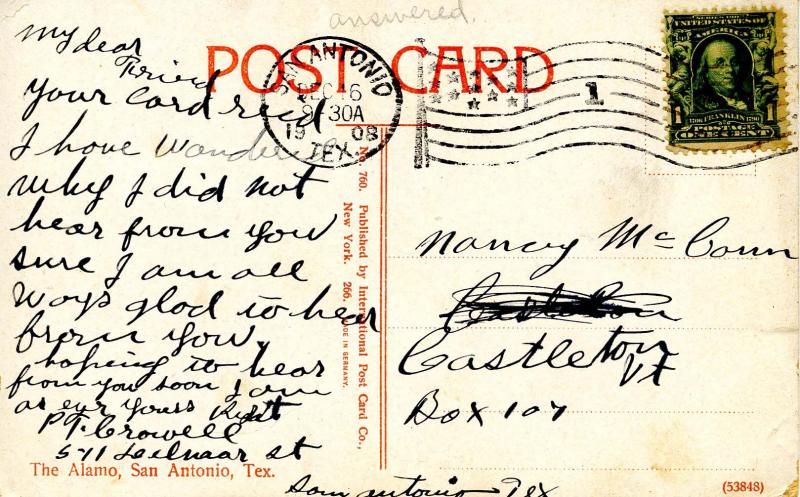 answered.
POST CARD
SAN ANTONIO
DEC 16
9 30A
1908
TEX.
1
SERIES 1902
UNITED STATES OF
AMERICA
1706 FRANKLIN 1790
1 POSTAGE 1
ONE CENT
My dear
Friend
your card recd
I have wondered
why I did not
hear from you
sure I am all
ways glad to hear
from you.
hoping to hear
from you soon I am
as ever yours
P. T. Crowell
511 St
San Antonio Tex
No. 760. Published by International Post Card Co.,
New York. 266. MADE IN GERMANY.
Nancy McConn
Castleton
Vt
Box 107
The Alamo, San Antonio, Tex.
(53848)